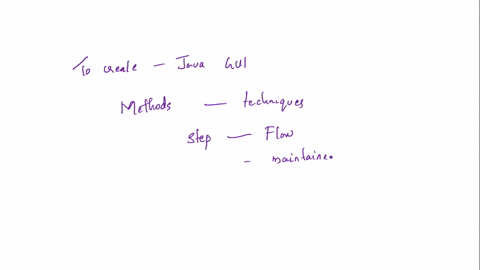 To create - Java GUI
Methods - techniques
Step - Flow
- maintaine.